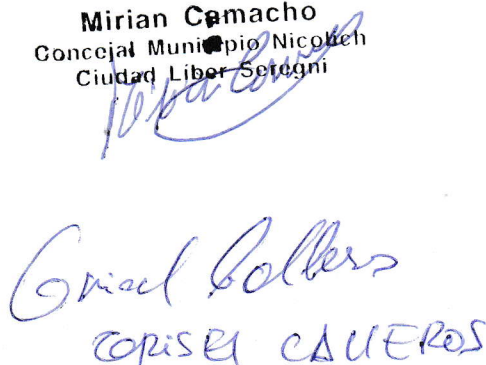 Mirian Camacho
Concejal Municipio Nicolich
Ciudad Liber Seregni
Grisel
GRISEL CALLEROS